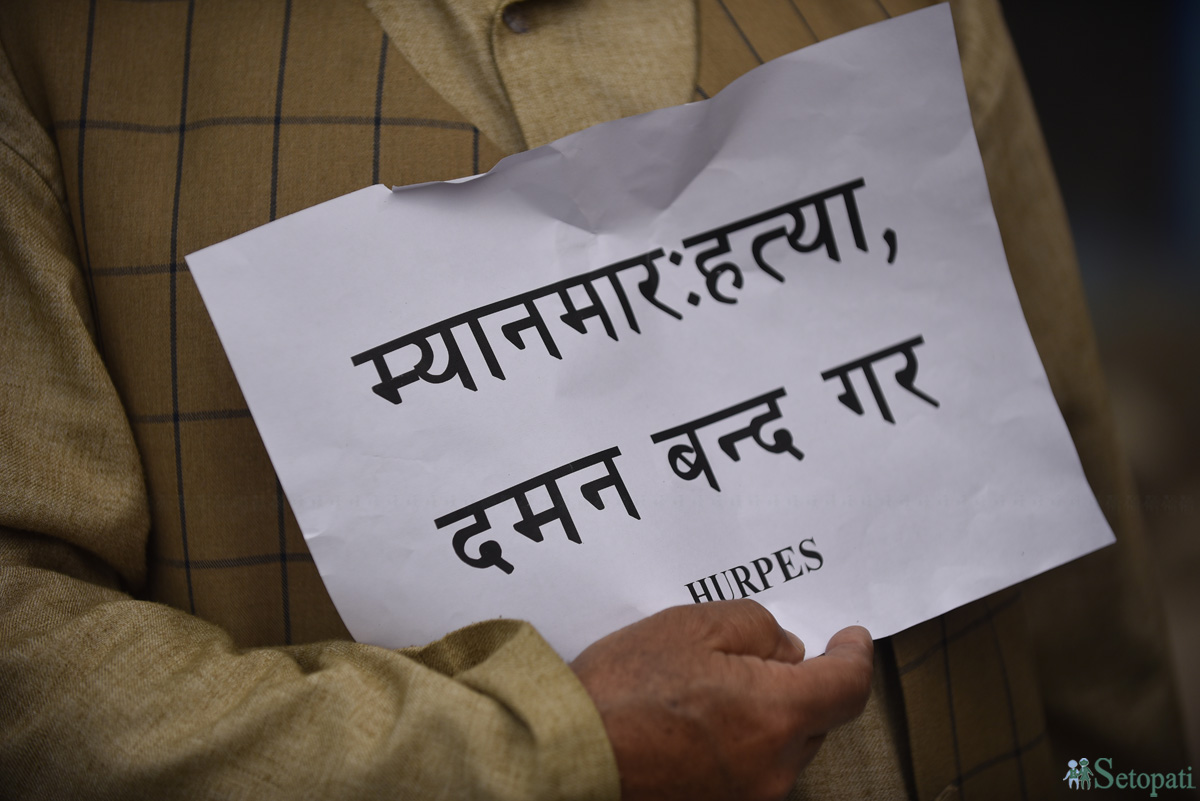 म्यानमारःहत्या,
दमन बन्द गर
HURPES
Setopati